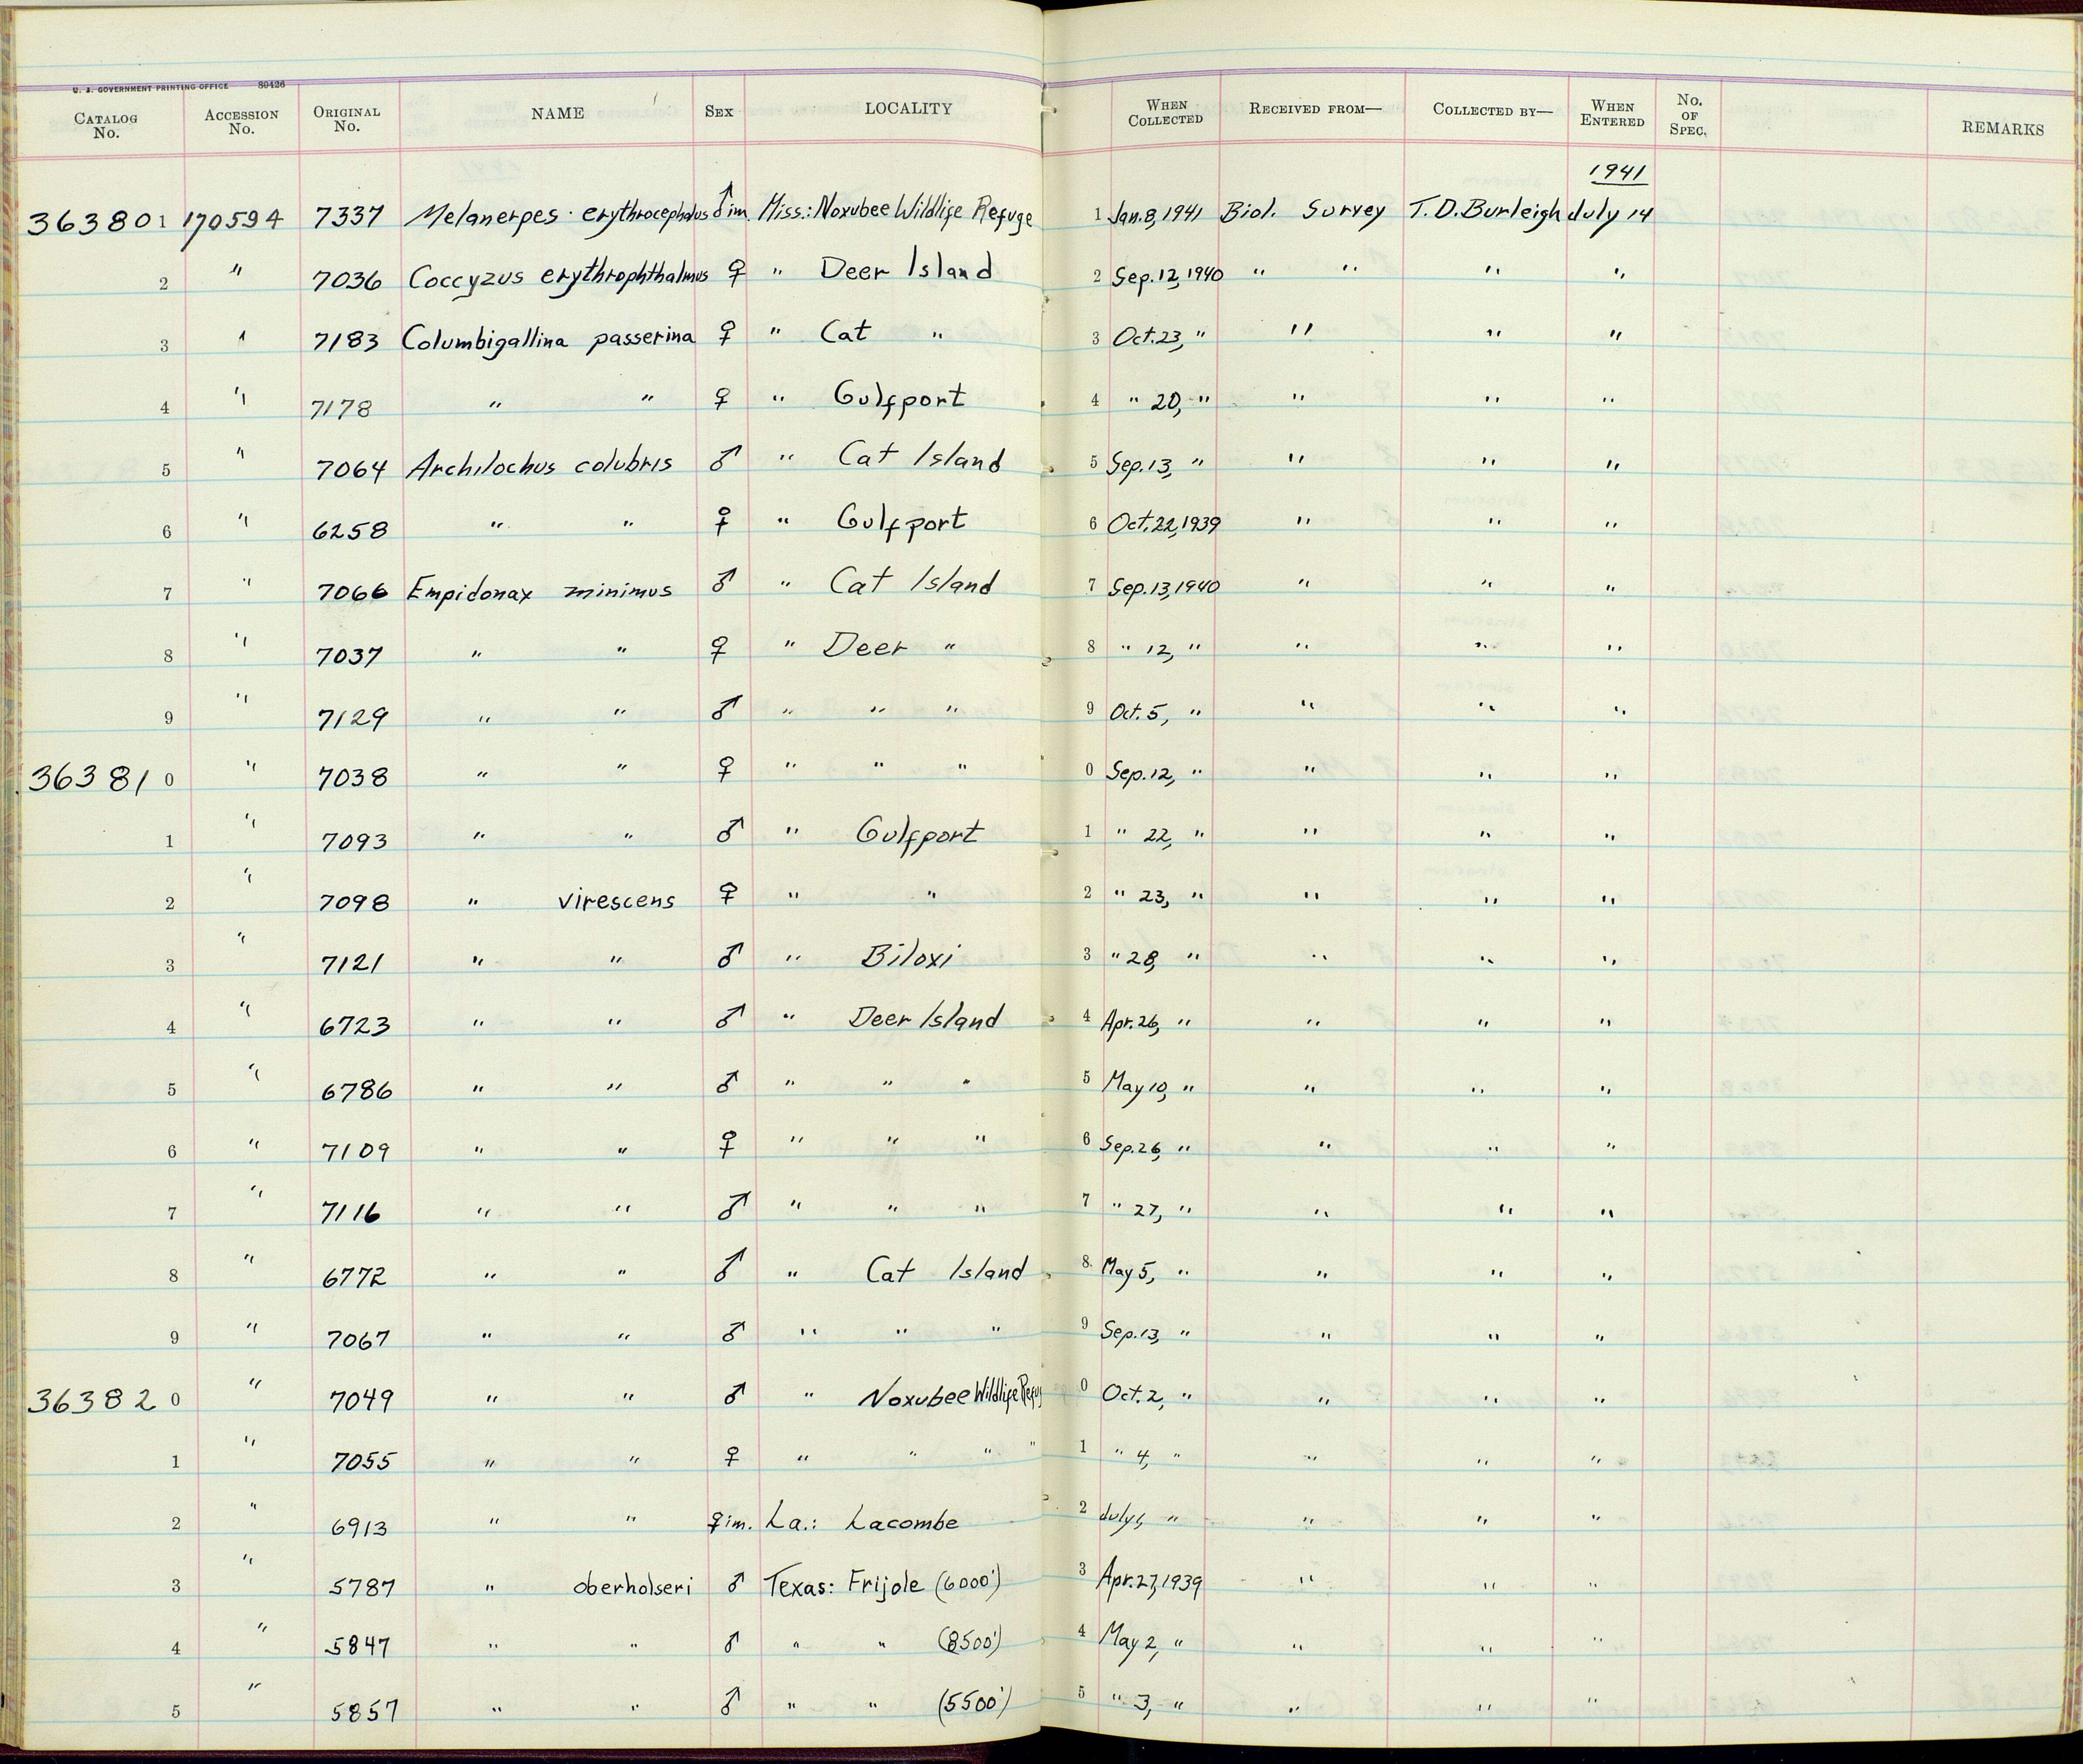 U. S. GOVERNMENT PRINTING OFFICE 80426
CATALOG No. ACCESSION No. ORIGINAL No. NAME SEX LOCALITY WHEN COLLECTED RECEIVED FROM— COLLECTED BY— WHEN ENTERED No. OF SPEC. REMARKS
1941
363801 170594 7337 Melanerpes erythrocephalus ♂ im. Miss.: Noxubee Wildlife Refuge 1 Jan. 8, 1941 Biol. Survey T. D. Burleigh July 14
2 " 7036 Coccyzus erythrophthalmus ♀ " Deer Island 2 Sep. 12, 1940 " " " "
3 " 7183 Columbigallina passerina ♀ " Cat " 3 Oct. 23, " " " "
4 " 7178 " " ♀ " Gulfport 4 " 20, " " " "
5 " 7064 Archilochus colubris ♂ " Cat Island 5 Sep. 13, " " " "
6 " 6258 " " ♀ " Gulfport 6 Oct. 22, 1939 " " "
7 " 7066 Empidonax minimus ♂ " Cat Island 7 Sep. 13, 1940 " " "
8 " 7037 " " ♀ " Deer " 8 " 12, " " " "
9 " 7129 " " ♂ " " " 9 Oct. 5, " " " "
363810 " 7038 " " ♀ " " " 0 Sep. 12, " " " "
1 " 7093 " " ♂ " Gulfport 1 " 22, " " " "
2 " 7098 " virescens ♀ " " 2 " 23, " " " "
3 " 7121 " " ♂ " Biloxi 3 " 28, " " " "
4 " 6723 " " ♂ " Deer Island 4 Apr. 26, " " " "
5 " 6786 " " ♂ " " " 5 May 10, " " " "
6 " 7109 " " ♀ " " " 6 Sep. 26, " " " "
7 " 7116 " " ♂ " " " 7 " 27, " " " "
8 " 6772 " " ♂ " Cat Island 8 May 5, " " " "
9 " 7067 " " ♂ " " " 9 Sep. 13, " " " "
363820 " 7049 " " ♂ " Noxubee Wildlife Refug 0 Oct. 2, " " " "
1 " 7055 " " ♀ " " " " 1 " 4, " " " "
2 " 6913 " " ♀ im. La.: Lacombe 2 July " " " "
3 " 5787 " oberholseri ♂ Texas: Frijole (6000') 3 Apr. 27, 1939 " " "
4 " 5847 " " ♂ " " (8500') 4 May 2, " " " "
5 " 5857 " " ♂ " " (5500') 5 " 3, " " " "